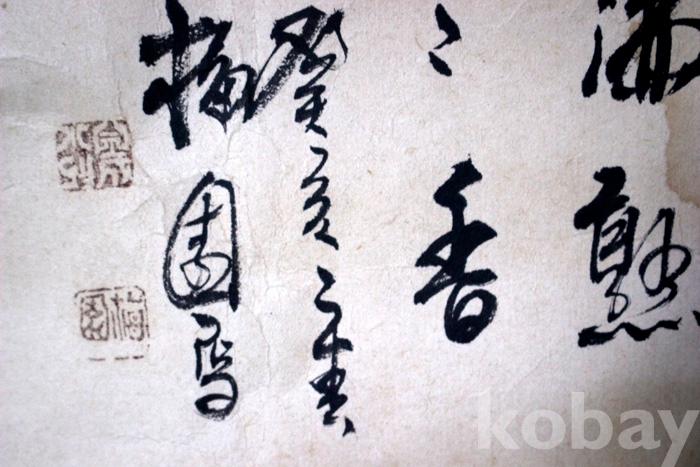 熟
香
癸亥之春
梅園寫
梅園
kobay